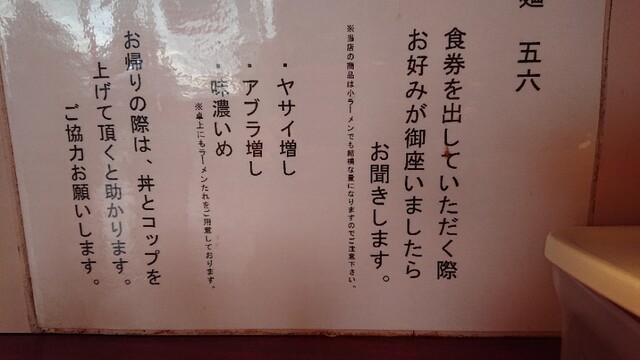 麺 五六
食券を出していただく際
お好みが御座いましたら
お聞きします。
※当店の商品は小ラーメンでも結構な量になりますのでご注意下さい。
・ヤサイ増し
・アブラ増し
・味濃いめ
※卓上にもラーメンたれをご用意しております。
お帰りの際は、丼とコップを
上げて頂くと助かります。
ご協力お願いします。